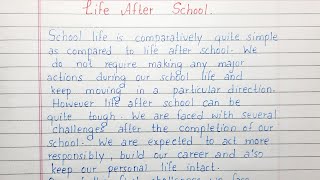 Life After School.
School life is comparatively quite simple
as compared to life after school. We
do not require making any major
actions during our school life and
keep moving in a particular direction.
However life after school can be
quite tough. We are faced with several
challenges after the completion of our
school. We are expected to act more
responsibly, build our career and also
keep our personal life intact.